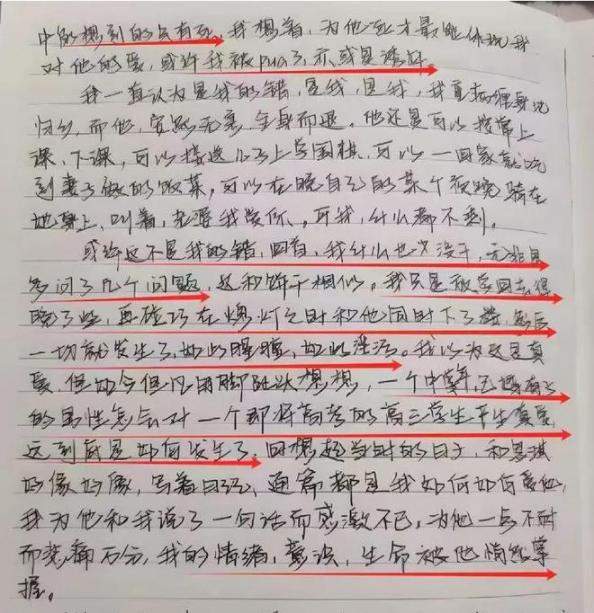 中能想到的只有死，我想着，为他死才最能体现我
对他的爱，或许我被pua了，亦或是诱奸。
我一直认为是我的错，是我，是我，我重病缠身
归乡，而他，安然无恙，全身而退。他还是可以按常上
课、下课，可以接送儿子上学围棋，可以一回家就吃
到妻子做的饭菜，可以在晚自习的某个夜晚骑在
她身上，叫着，老婆我爱你、可我，什么都不剩。
或许这不是我的错，回看，我什么也没干，无非是
多问了几个问题，这和饼干相似。我只是放学回去得
晚了些，再碰巧在熄灯之时和他同时下了楼，然后
一切就发生了，如此朦胧，如此淫污。我以为这是真
爱，但如今但凡用脚趾头想想，一个中年已婚有子
的男性怎么对一个即将高考的高三学生产生真爱
这到底是如何发生了，回想起当时的日子，和思琪
好像好像，写着日记，通篇都是我如何如何爱他，
我为他和我说了一句话而感激不已，为他一点不耐
而悲痛万分，我的情绪，意识，生命被他悄然掌
握。